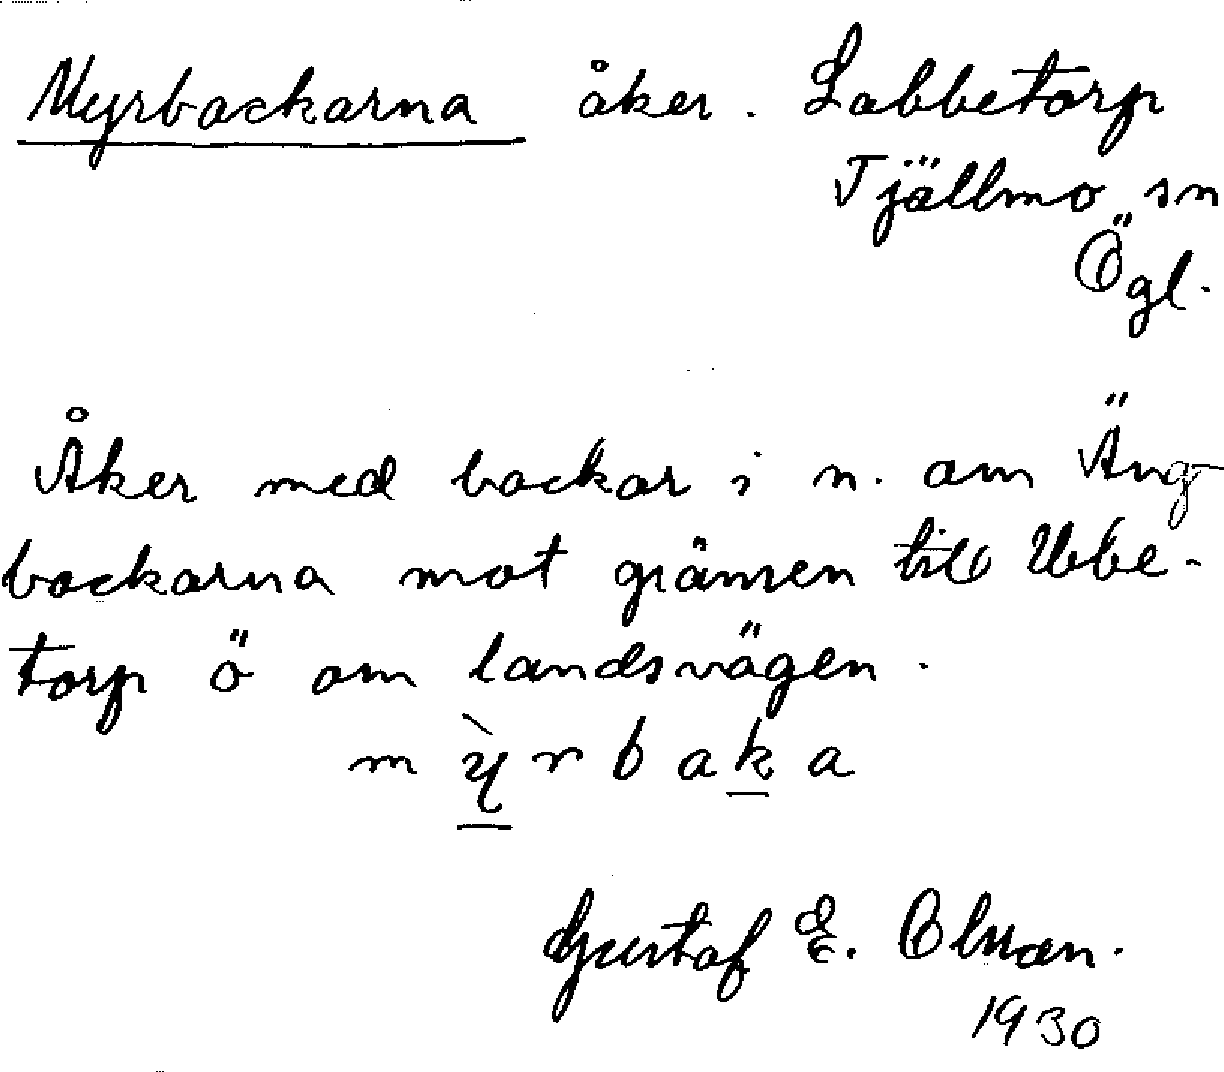 Myrbackarna åker. Labbetorp
Tjällmo sn
Ögl.
Åker med backar i n. om Äng
backarna mot gränsen till Ubbe-
torp ö om landsvägen.
m ỳ̱ r b a ḵ a
Gustaf E. Olsson.
1930